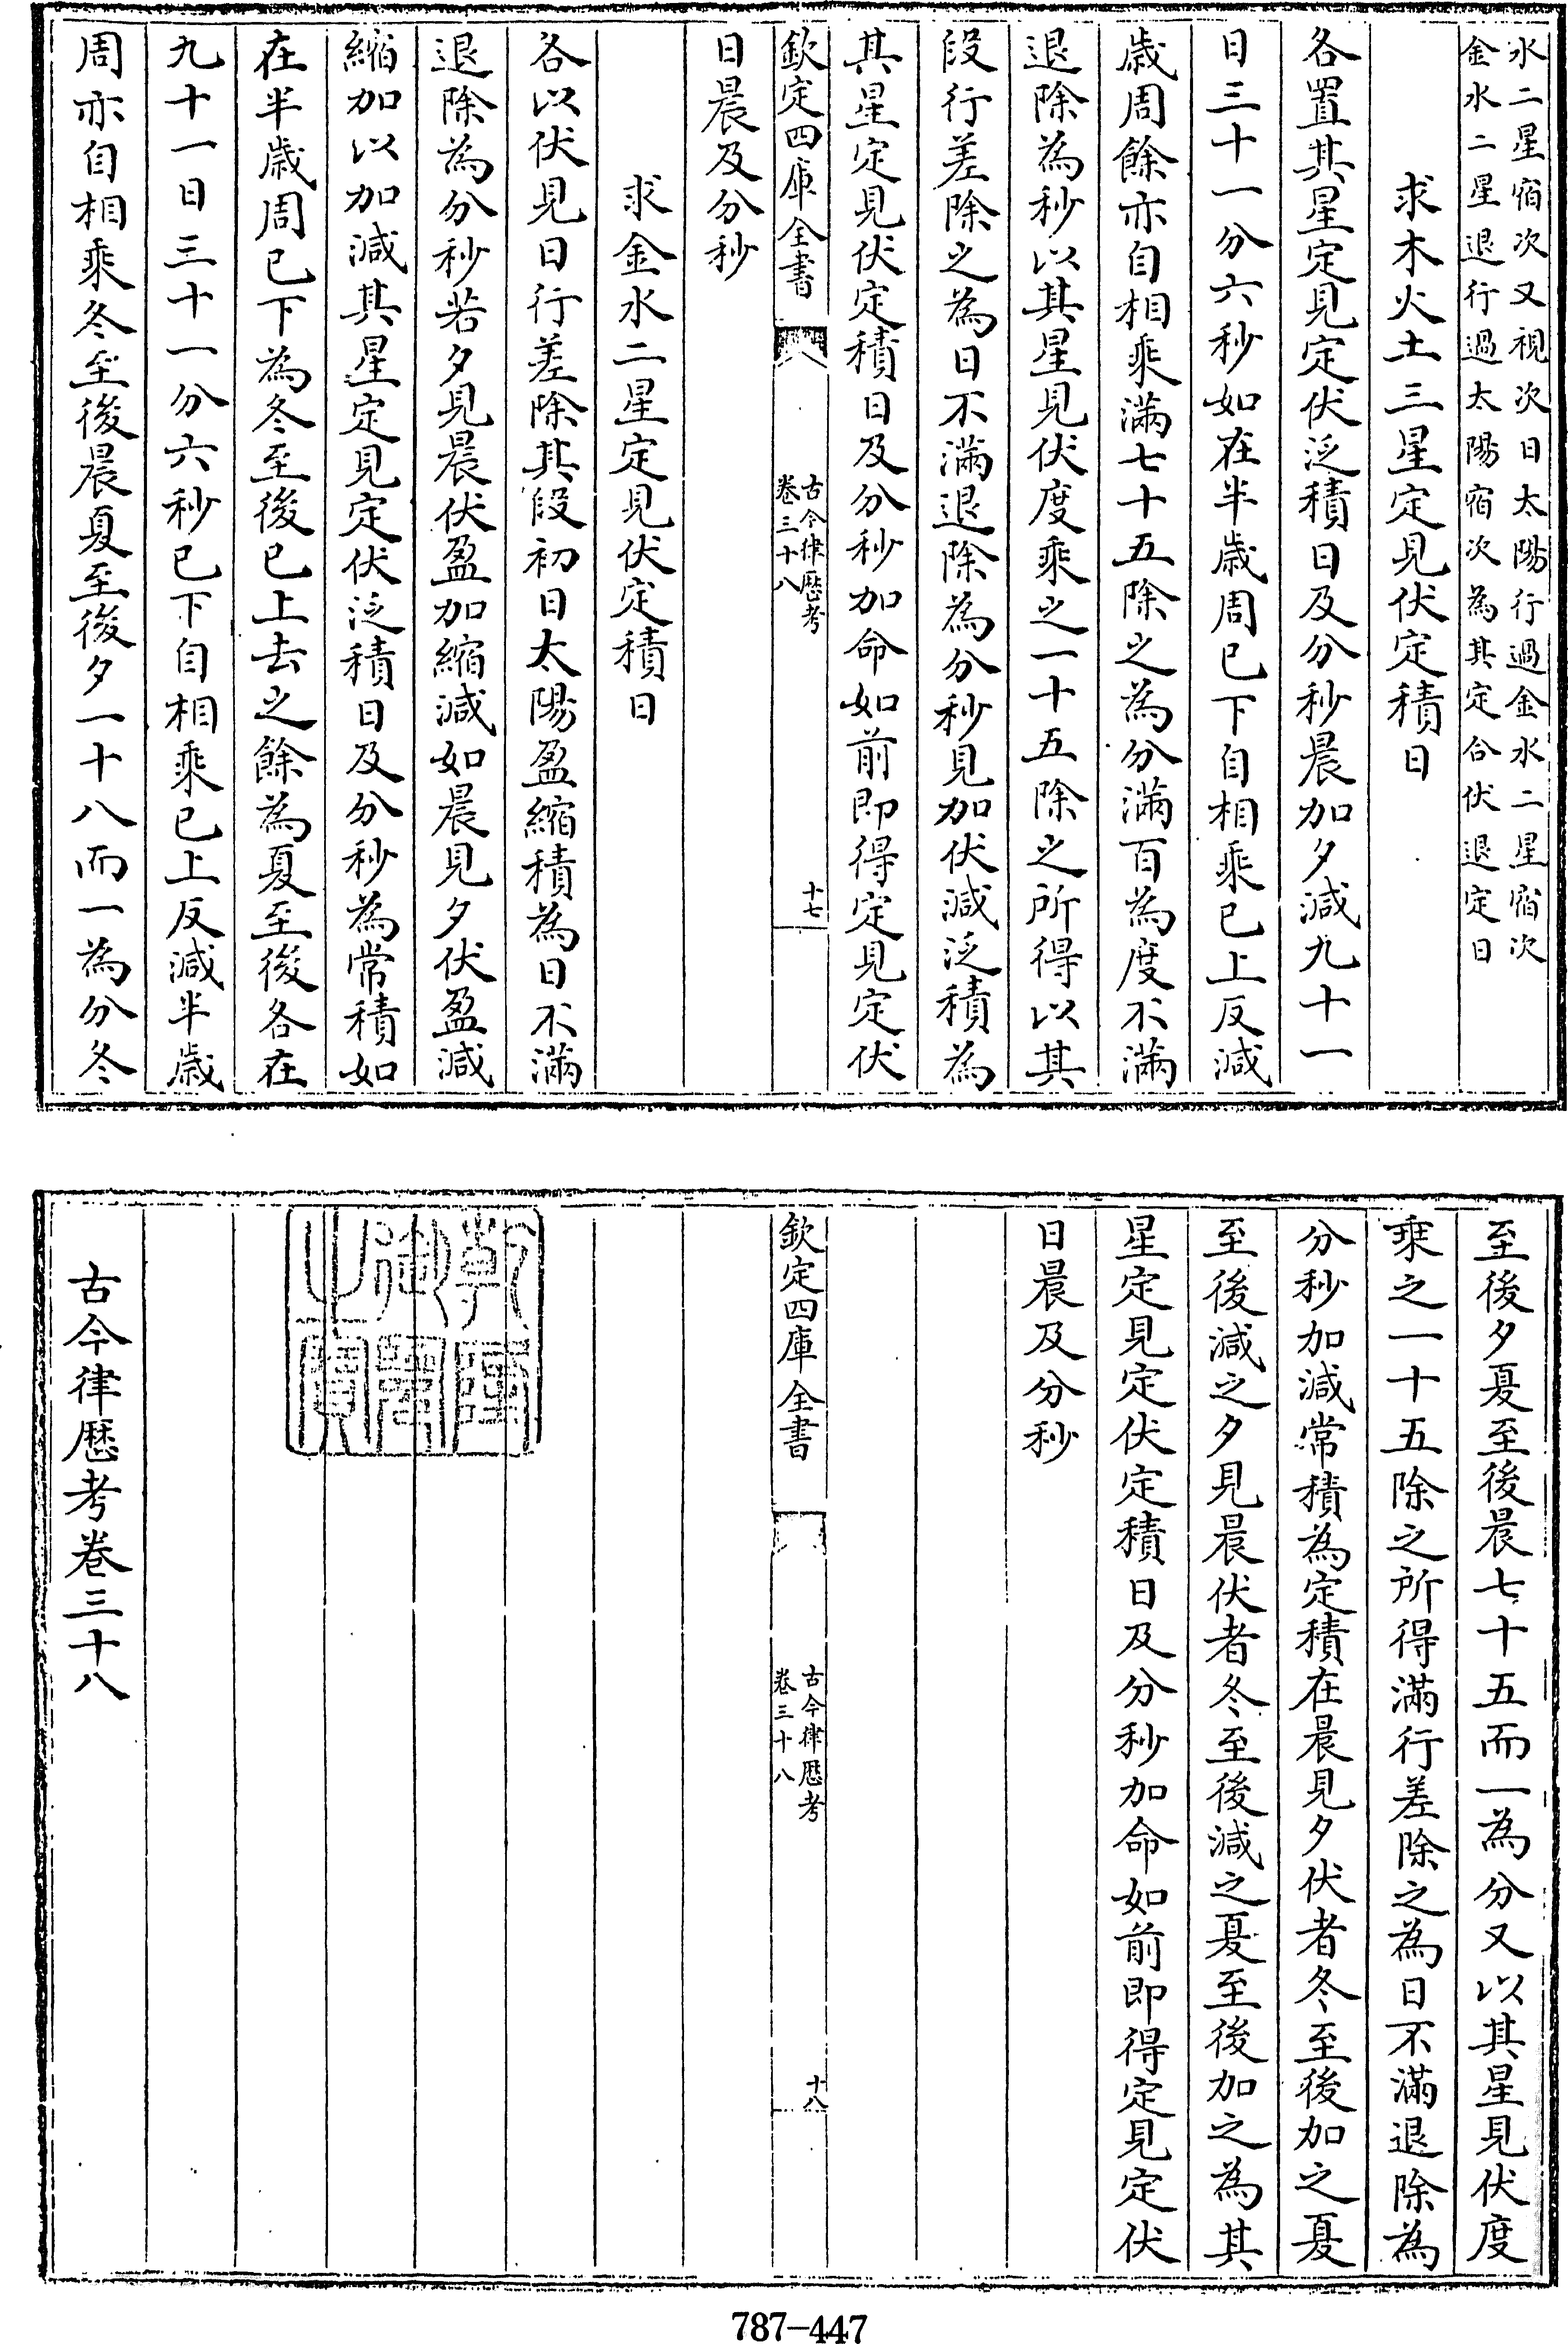 水二星宿次又視次日太陽行過金水二星宿次
金水二星退行過太陽宿次為其定合伏退定日
求木火土三星定見伏定積日
各置其星定見定伏泛積日及分秒晨加夕減九十一
日三十一分六秒如在半歲周已下自相乘已上反減
歲周餘亦自相乘滿七十五除之為分滿百為度不滿
退除為秒以其星見伏度乘之一十五除之所得以其
段行差除之為日不滿退除為分秒見加伏減泛積為
其星定見伏定積日及分秒加命如前即得定見定伏
欽定四庫全書
古今律歷考
卷三十八
十七
日晨及分秒
求金水二星定見伏定積日
各以伏見日行差除其段初日太陽盈縮積為日不滿
退除為分秒若夕見晨伏盈加縮減如晨見夕伏盈減
縮加以加減其星定見定伏泛積日及分秒為常積如
在半歲周已下為冬至後已上去之餘為夏至後各在
九十一日三十一分六秒已下自相乘已上反減半歲
周亦自相乘冬至後晨夏至後夕一十八而一為分冬
至後夕夏至後晨七十五而一為分又以其星見伏度
乘之一十五除之所得滿行差除之為日不滿退除為
分秒加減常積為定積在晨見夕伏者冬至後加之夏
至後減之夕見晨伏者冬至後減之夏至後加之為其
星定見定伏定積日及分秒加命如前即得定見定伏
日晨及分秒
欽定四庫全書
古今律歷考
卷三十八
十八
乾隆御覽之寶
古今律歷考卷三十八
787-447